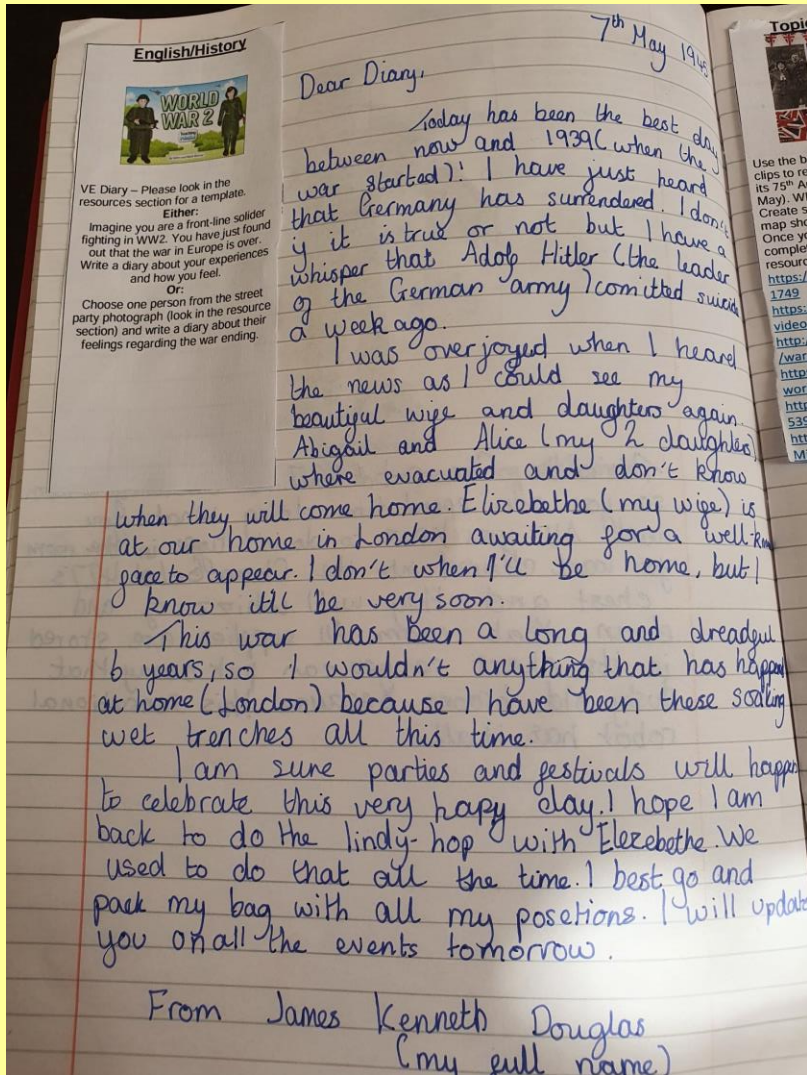 English/History
WORLD
WAR 2
VE Diary – Please look in the
resources section for a template.
Either:
Imagine you are a front-line solider
fighting in WW2. You have just found
out that the war in Europe is over.
Write a diary about your experiences
and how you feel.
Or:
Choose one person from the street
party photograph (look in the resource
section) and write a diary about their
feelings regarding the war ending.
7th May 1945
Dear Diary,
Today has been the best day
between now and 1939 (when the
war started)! I have just heard
that Germany has surrendered. I don't
if it is true or not but I have a
whisper that Adolf Hitler (the leader
of the German army) comitted suicide
a week ago.
I was overjoyed when I heard
the news as I could see my
beautiful wife and daughters again.
Abigail and Alice (my 2 daughters)
where evacuated and don't know
when they will come home. Elizebethe (my wife) is
at our home in London awaiting for a well-know
face to appear. I don't when I'll be home, but I
know it'll be very soon.
This war has been a long and dreadful
6 years, so I wouldn't anything that has happen
at home (London) because I have been these soaking
wet trenches all this time.
I am sure parties and festivals will happen
to celebrate this very hapy day. I hope I am
back to do the lindy-hop with Elezebethe. We
used to do that all the time. I best go and
pack my bag with all my posetions. I will update
you on all the events tomorrow.
From James Kenneth Douglas
(my full name)
Topic
Use the b
clips to re
its 75th
May). W
Create s
map sho
Once yo
comple
resourc
https:/
1749
https:
video
http:/
/war
http
wor
htt
539
htt
M